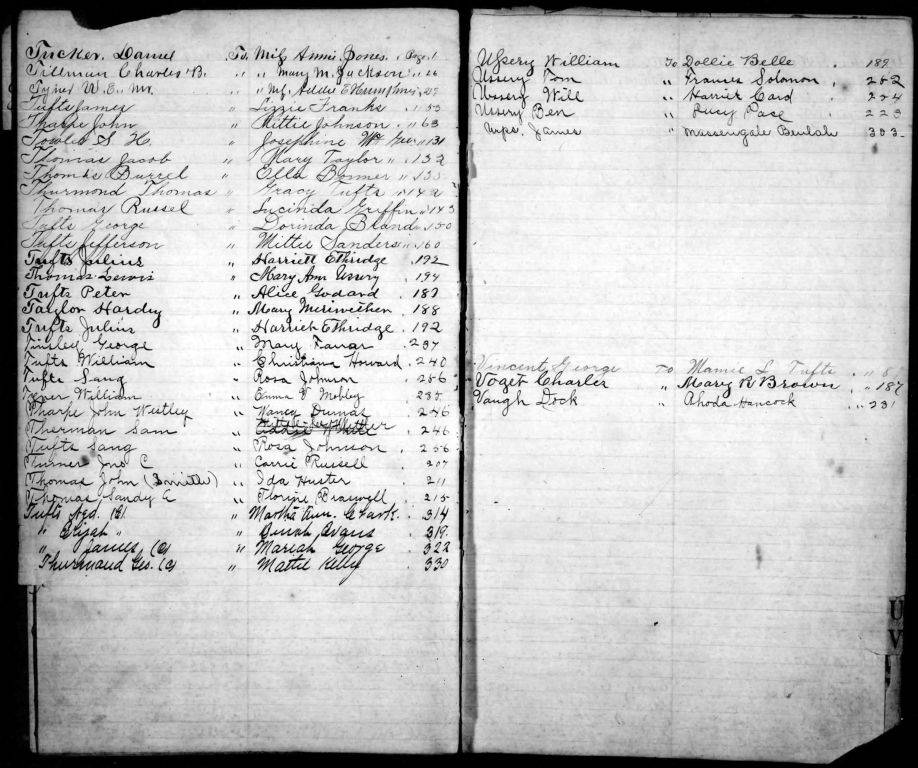 Tucker, Daniel To Miss Annie Jones. Page 1
Tillman Charles B. " " Mary M. Jackson " 26
Tynes W. E. Mr. " " Miss Addie E
Tufts James " Lizzie Franks " 55
Tharpe John " Kittie Johnson " 63
Fowler S. H. " Josephine " 131
Thomas Jacob " Mary Taylor " 132
Thomas Burrel " Ella Bonner " 135
Thurmond Thomas " Gracy Tufts " 142
Thomas Russel " Lucinda Griffin " 143
Tufts George " Dorinda Bland " 150
Tufts Jefferson " Mittie Sanders " 160
Tufts Julius " Harriett Ethridge . 192
Thomas Lewis " Mary Ann Ussery . 194
Tufts Peter " Alice Godard . 187
Taylor Hardy " Mary Meriwether . 188
Tufts Julius " Harriet Ethridge . 192
Tinsley George " Mary Farrar . 237
Tufts William " Christiana Howard . 240
Tufts Sang " Rosa Johnson . 256
William " Emma V Mobley 235
Tharpe John Westley " Nancy Dumas . 246
Therman Sam " . 246
Tufts Sang " Rosa Johnson . 256
Turner Jno C " Carrie Russell . 207
Thomas John " Ida Huster . 211
Thomas Sandy E " Florine Braswell . 215
Tufts Ned. (C) " Martha Ann. Clark . 314
" Elijah " " Dinah . 319.
" James (C) " Mariah George . 322
Thurmand Geo. (C) " Mattie Kelly . 330
Ussery William To Dollie Belle . 189
Ussery Tom " Frances Solomon . 252
Ussery Will " Harriet Card . 254
Ussery Ben " Lucy Pase . 223
James " Massengale Beulah . 303
Vincent George To Mamie L Tufts "
Voget Charles " Mary R Brown " 187
Vaugh Dock " Rhoda Hancock " 231
U
V